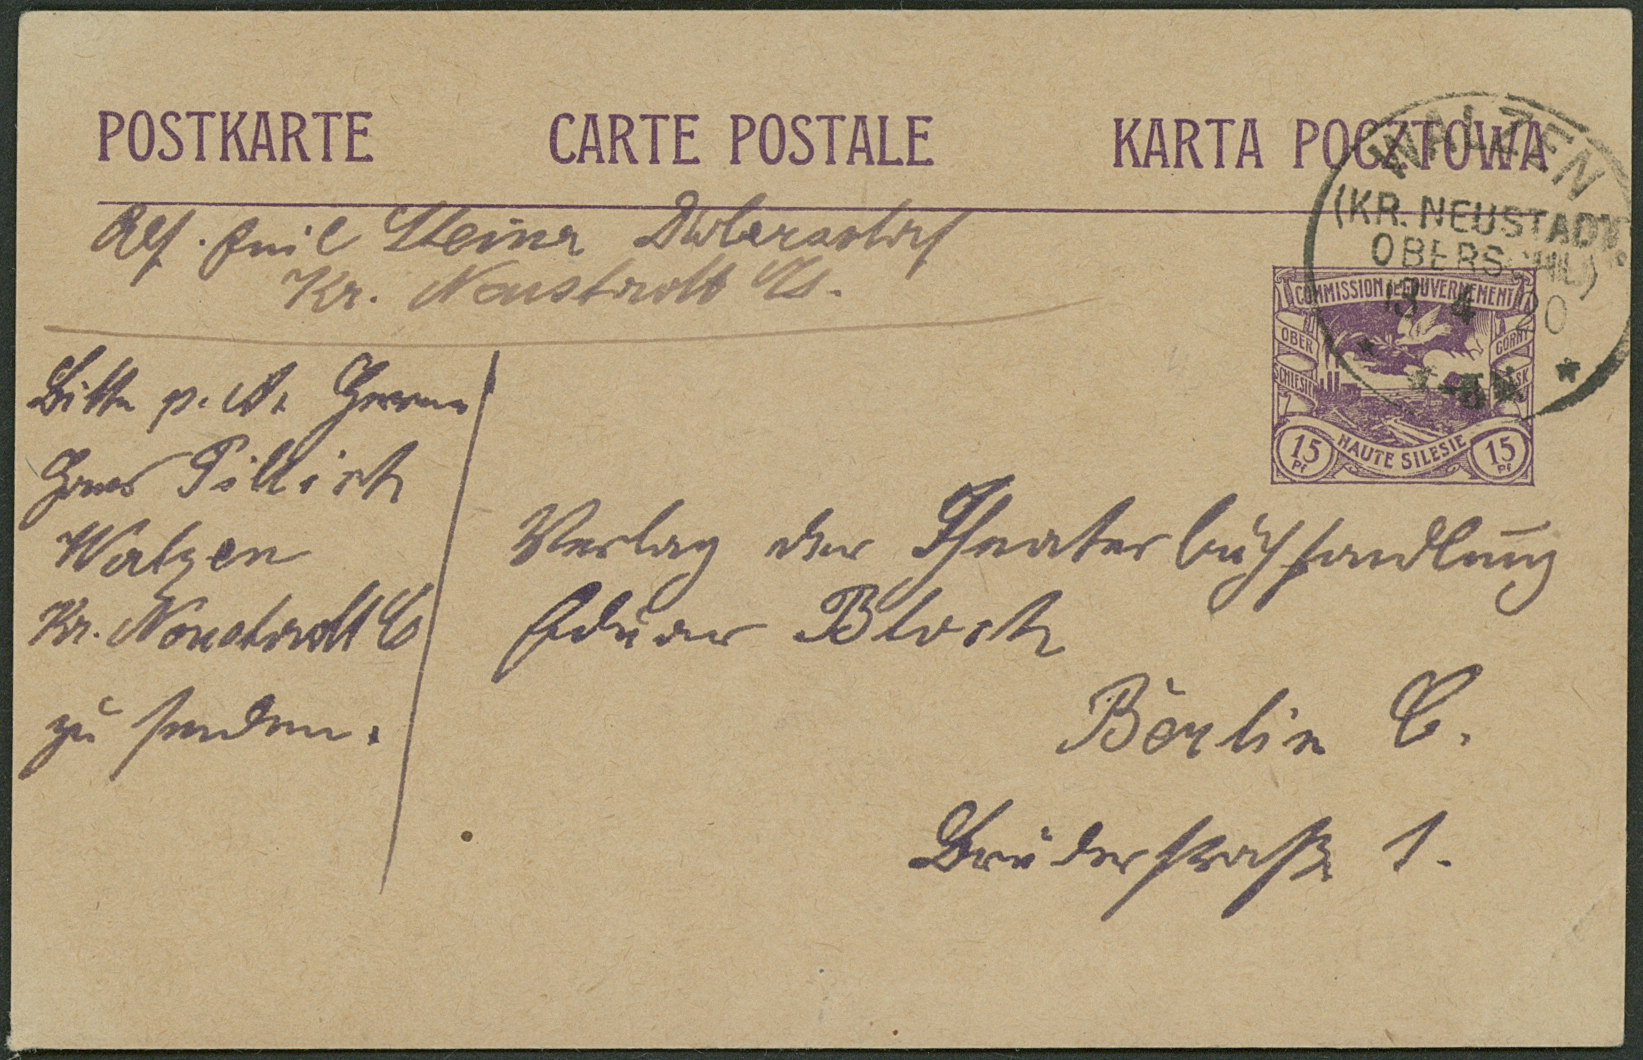 POSTKARTE CARTE POSTALE KARTA POCZTOWA
WALZEN
(KR. NEUSTADT
OBERSCHL)
13 4 20
COMMISSION DE GOUVERNEMENT
OBER GORNY
SCHLESIEN SLASK
15 Pf HAUTE SILESIE 15 Pf
Abs. Emil Steiner Dobersdorf
Kr. Neustadt O/S.
Bitte p. A. Herrn
Hans Pillich
Walzen
Kr. Neustadt
zu senden.
Verlag der Theaterbuchhandlung
Eduar Bloch
Berlin C.
Brüderstraße 1.